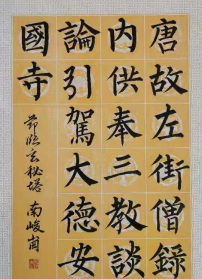 唐故左街僧錄
內供奉三教談
論引駕大德安
國寺
節臨玄秘塔 南峻岡